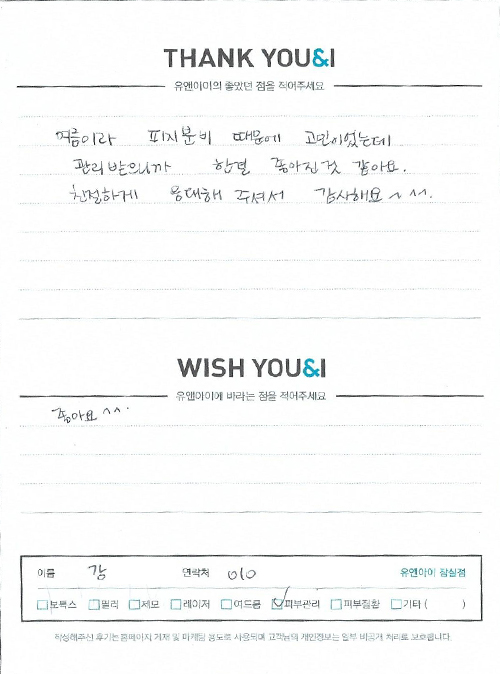 THANK YOU&I
유앤아이의 좋았던 점을 적어주세요
여름이라 피지분비 때문에 고민이었는데
관리받으니까 한결 좋아진것 같아요.
친절하게 응대해 주셔서 감사해요~^^.
WISH YOU&I
유앤아이에 바라는 점을 적어주세요
좋아요^^.
이름 강 연락처 010 유앤아이 잠실점
보톡스 필러 제모 레이저 여드름 피부관리 피부질환 기타 ( )
작성해주신 후기는 홈페이지 게재 및 마케팅 용도로 사용되며 고객님의 개인정보는 일부 비공개 처리로 보호됩니다.